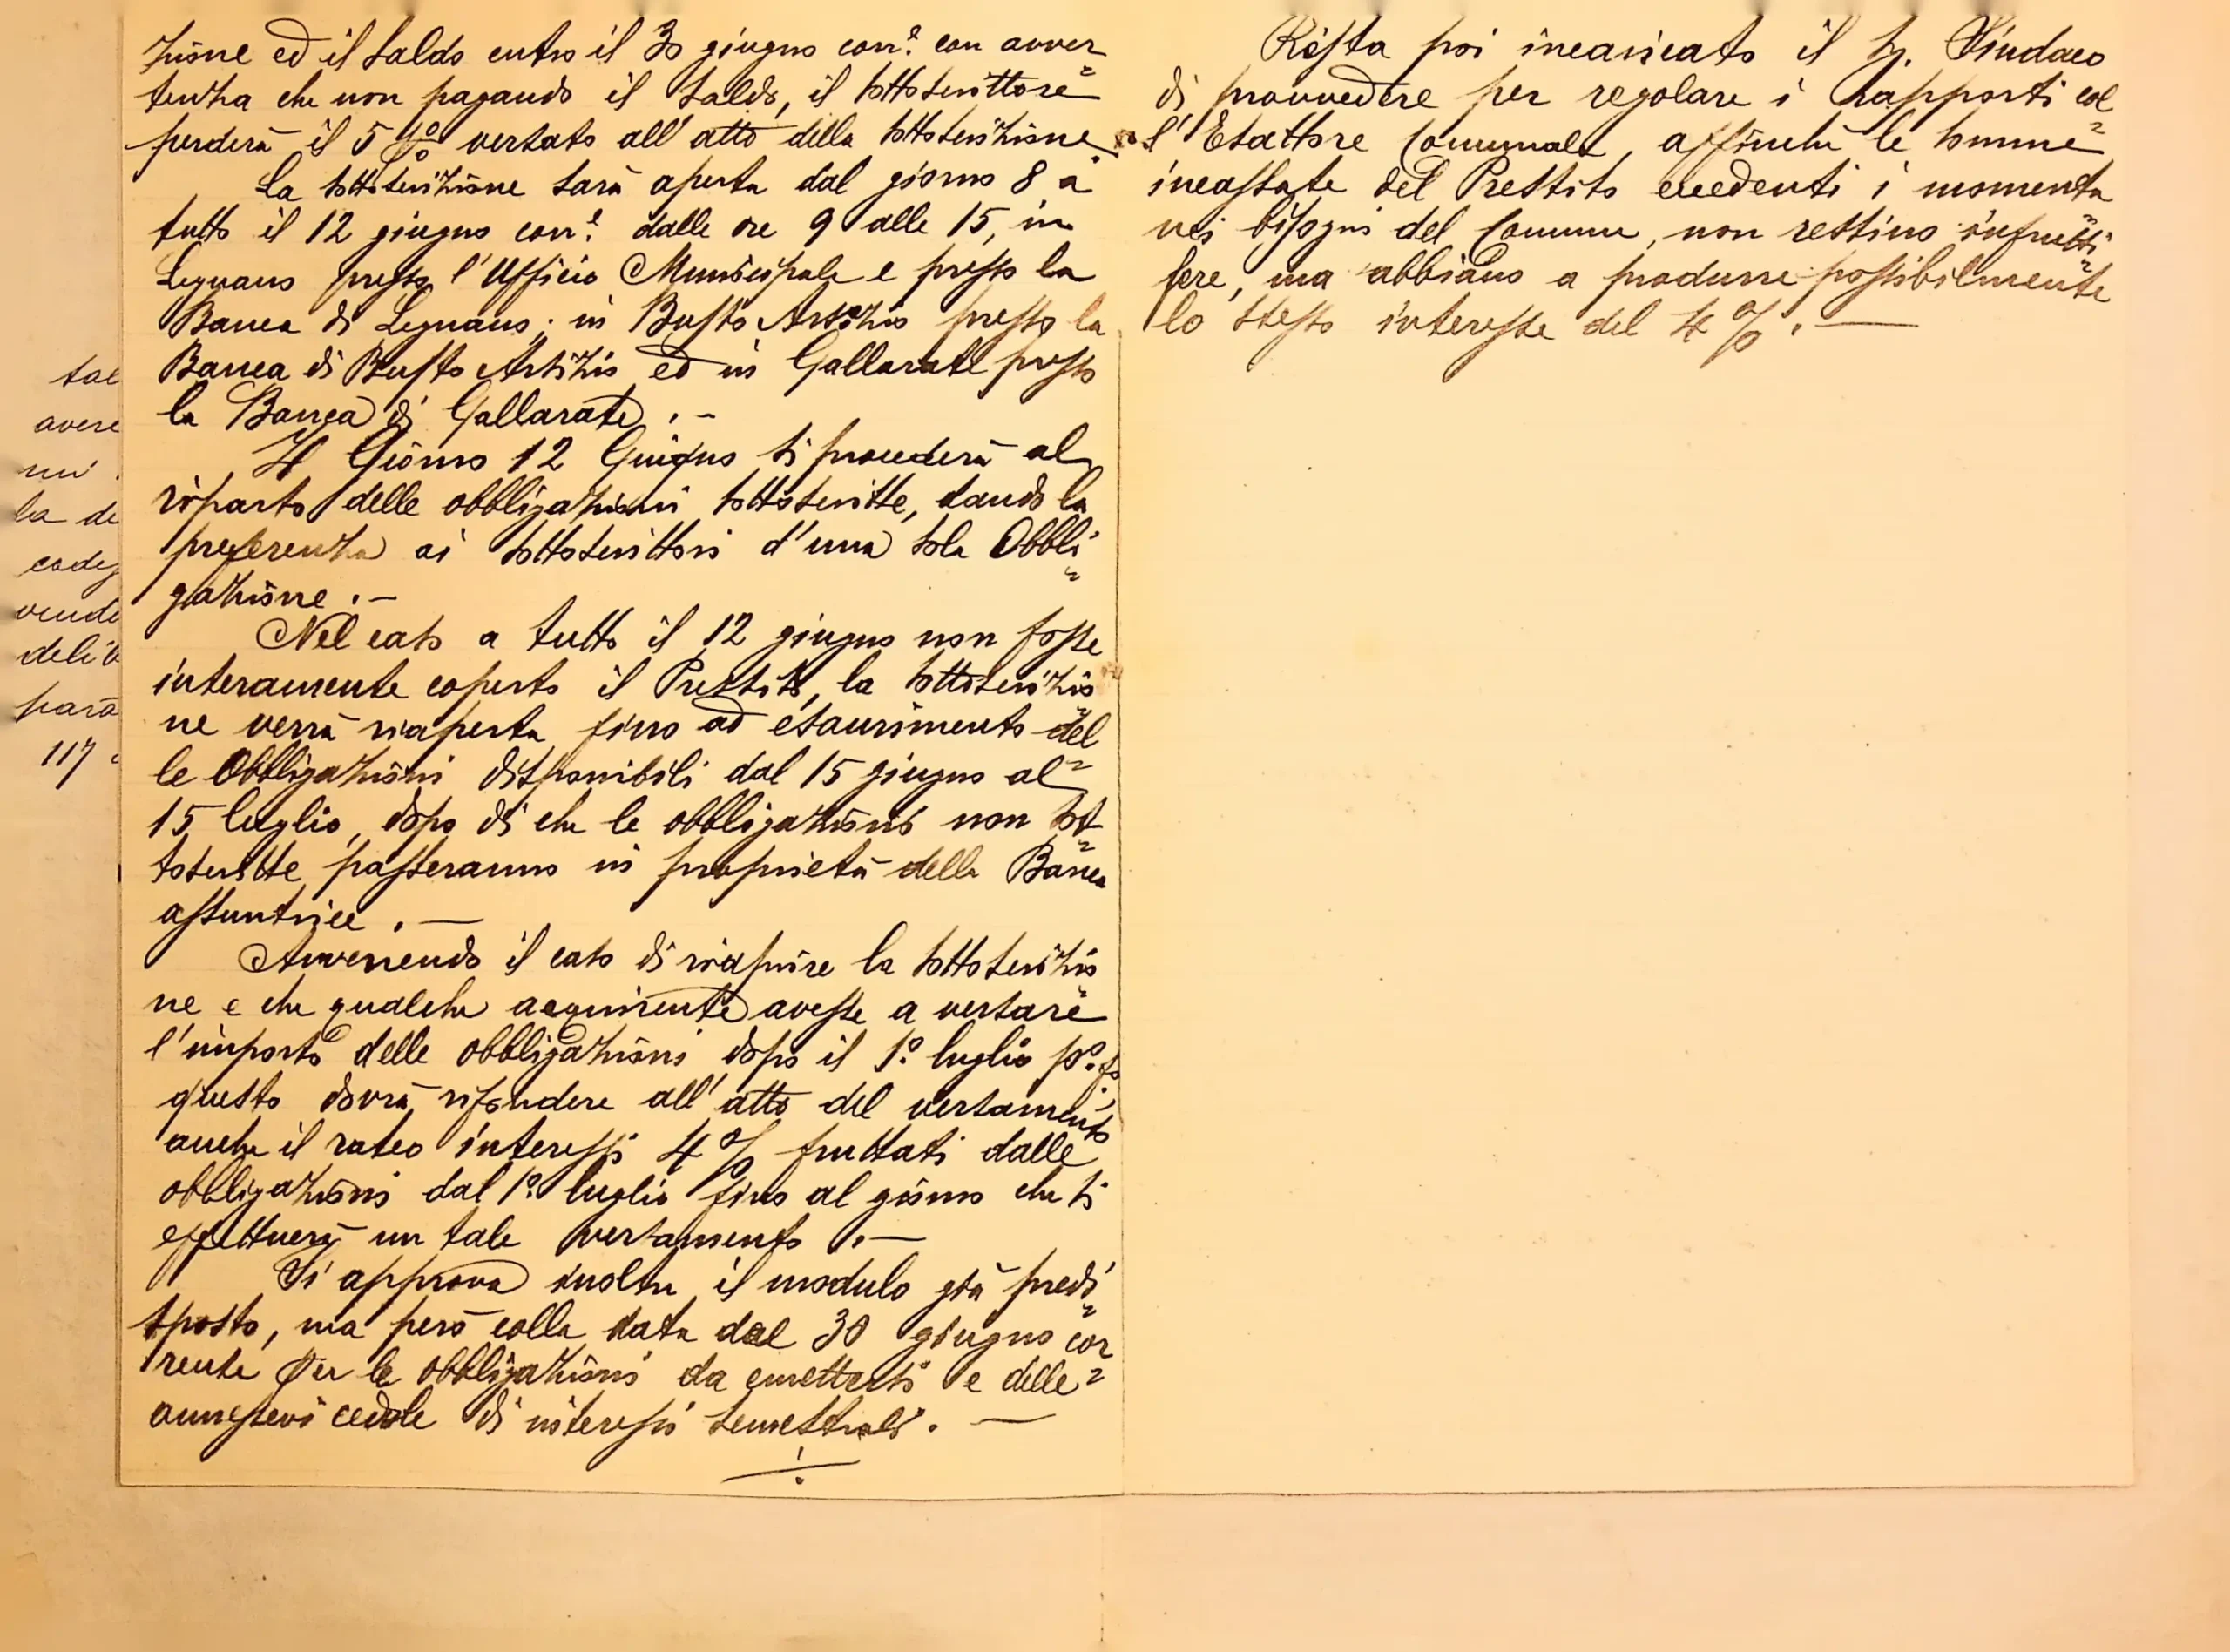 tal
avere
ni
la de
codes
vendo
delib
parā
117
zione ed il saldo entro il 30 giugno corr.e con avver=
tenza che non pagando il saldo, il sottoscrittore
perderà il 5 % versato all'atto della sottoscrizione.
La sottoscrizione sarà aperta dal giorno 8 a
tutto il 12 giugno corr.e dalle ore 9 alle 15, in
Legnano presso l'Ufficio Municipale e presso la
Banca di Legnano; in Busto Arsizio presso la
Banca di Busto Arsizio ed in Gallarate presso
la Banca di Gallarate. -
Il Giorno 12 Giugno si procederà al
riparto delle obbligazioni sottoscritte, dando la
preferenza ai sottoscrittori d'una sola Obbli=
gazione. -
Nel caso a tutto il 12 giugno non fosse
interamente coperto il Prestito, la sottoscrizio=
ne verrà riaperta fino ad esaurimento del=
le Obbligazioni disponibili dal 15 giugno al
15 luglio, dopo di che le obbligazioni non sot=
toscritte passeranno in proprietà della Banca
assuntrice. -
Avvenendo il caso di riaprire la sottoscrizio=
ne e che qualche acquirente avesse a versare
l'importo delle obbligazioni dopo il 1.o luglio p.o f.o,
questo dovrà rifondere all'atto del versamento
anche il rateo interessi 4 % fruttati dalle
obbligazioni dal 1.o luglio fino al giorno che si
effettuerà un tale versamento. -
Si approva inoltre il modulo già predi=
sposto, ma però colla data del 30 giugno cor=
rente per le obbligazioni da emettersi e delle
annessevi cedole di interessi semestrali. -
Resta poi incaricato il Sg. Sindaco
di provvedere per regolare i rapporti col=
l'Esattore Comunale, affinchè le somme
incassate del Prestito eccedenti i momenta=
nei bisogni del Comune, non restino infrutti=
fere, ma abbiano a produrre possibilmente
lo stesso interesse del 4 %. -